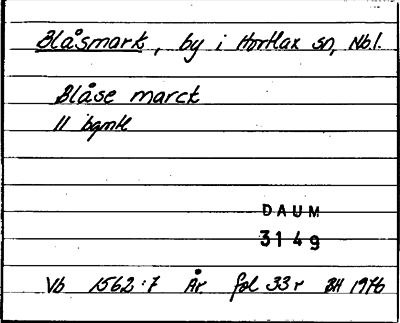 Blåsmark, by i Hortlax sn, Nbl.
Blåse marck
11 bqmtl
DAUM
3149
Vb 1562:7 År fol 33r BH 1976